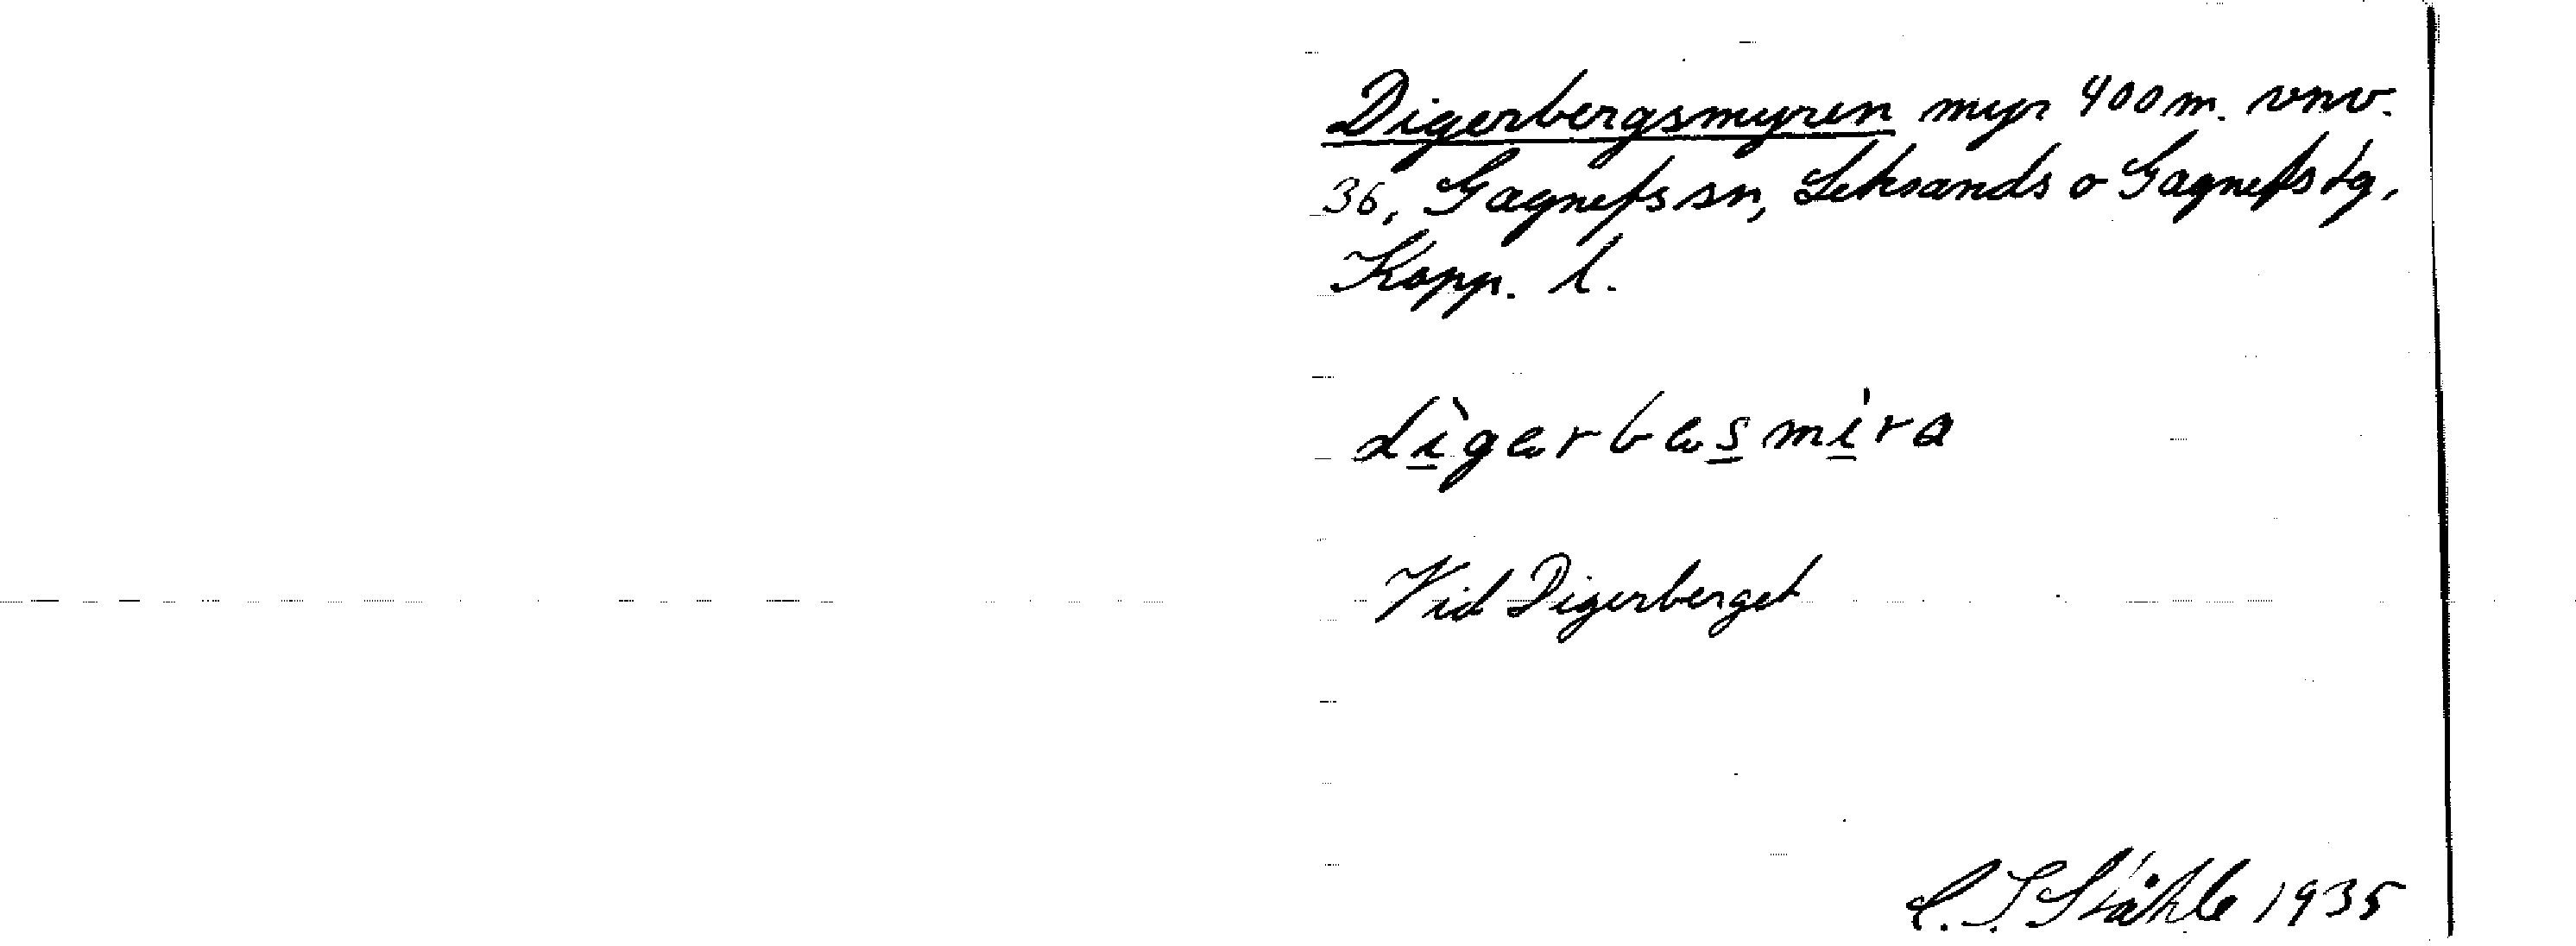 Digerbergsmyren myr 400 m. vnv.
36, Gagnefs sn, Leksands o Gagnefs tg,
Kopp. l.
dìgærbæsmira
Vid Digerberget
C. I. Ståhle 1935